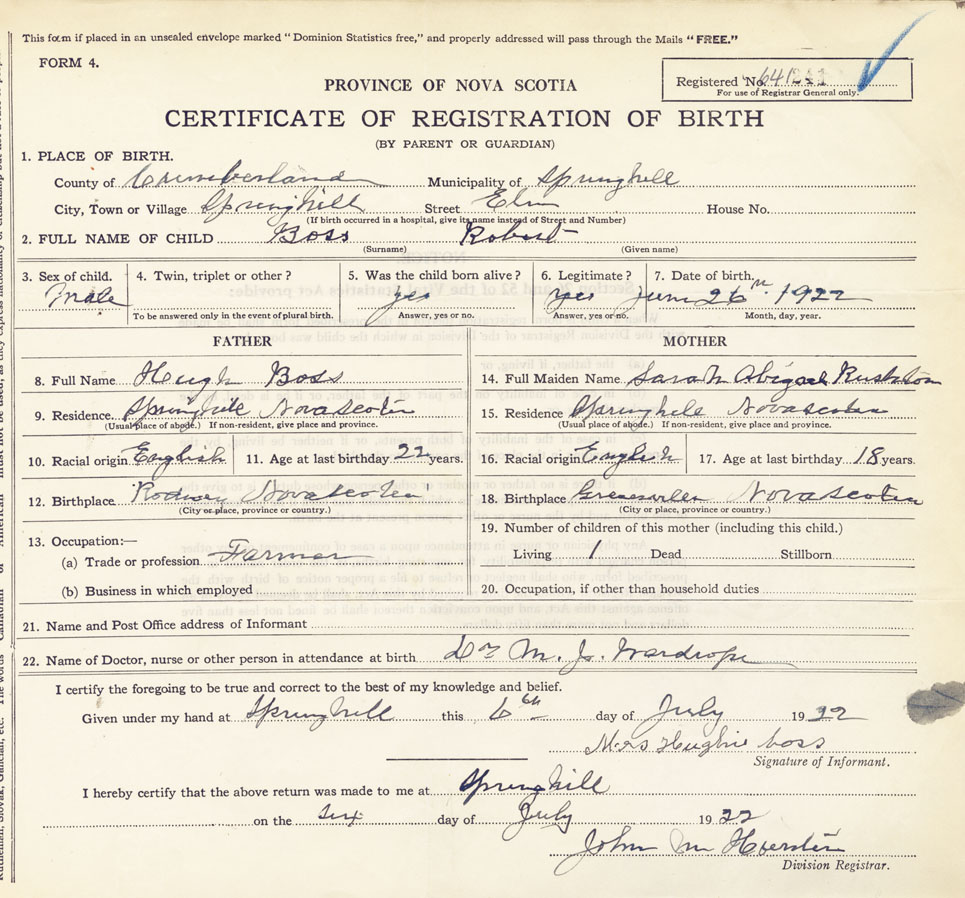 This form if placed in an unsealed envelope marked "Dominion Statistics free," and properly addressed will pass through the Mails "FREE."
FORM 4.
Registered No.
For use of Registrar General only.
PROVINCE OF NOVA SCOTIA
CERTIFICATE OF REGISTRATION OF BIRTH
(BY PARENT OR GUARDIAN)
1. PLACE OF BIRTH.
County of Cumberland Municipality of Springhill
City, Town or Village Springhill Street Elm House No.
(If birth occurred in a hospital, give its name instead of Street and Number)
2. FULL NAME OF CHILD Boss Robert
(Surname) (Given name)
3. Sex of child. 4. Twin, triplet or other? 5. Was the child born alive? 6. Legitimate? 7. Date of birth.
Male yes yes June 26 1922
To be answered only in the event of plural birth. Answer, yes or no. Answer, yes or no. Month, day, year.
FATHER MOTHER
8. Full Name Hugh Boss 14. Full Maiden Name Sarah Abigail
9. Residence Springhill Nova Scotia 15. Residence Springhill Nova Scotia
(Usual place of abode.) If non-resident, give place and province. (Usual place of abode.) If non-resident, give place and province.
10. Racial origin English 11. Age at last birthday 22 years. 16. Racial origin English 17. Age at last birthday 18 years.
12. Birthplace Rodney Nova Scotia 18. Birthplace Greenville Nova Scotia
(City or place, province or country.) (City or place, province or country.)
13. Occupation:— 19. Number of children of this mother (including this child.)
(a) Trade or profession Farmer Living 1 Dead Stillborn
(b) Business in which employed 20. Occupation, if other than household duties
21. Name and Post Office address of Informant
22. Name of Doctor, nurse or other person in attendance at birth Dr M. J. Wardrope
I certify the foregoing to be true and correct to the best of my knowledge and belief.
Given under my hand at Springhill this 6th day of July 1922
Mrs Hughie Boss
Signature of Informant.
I hereby certify that the above return was made to me at Springhill
on the six day of July 1922
John M
Division Registrar.